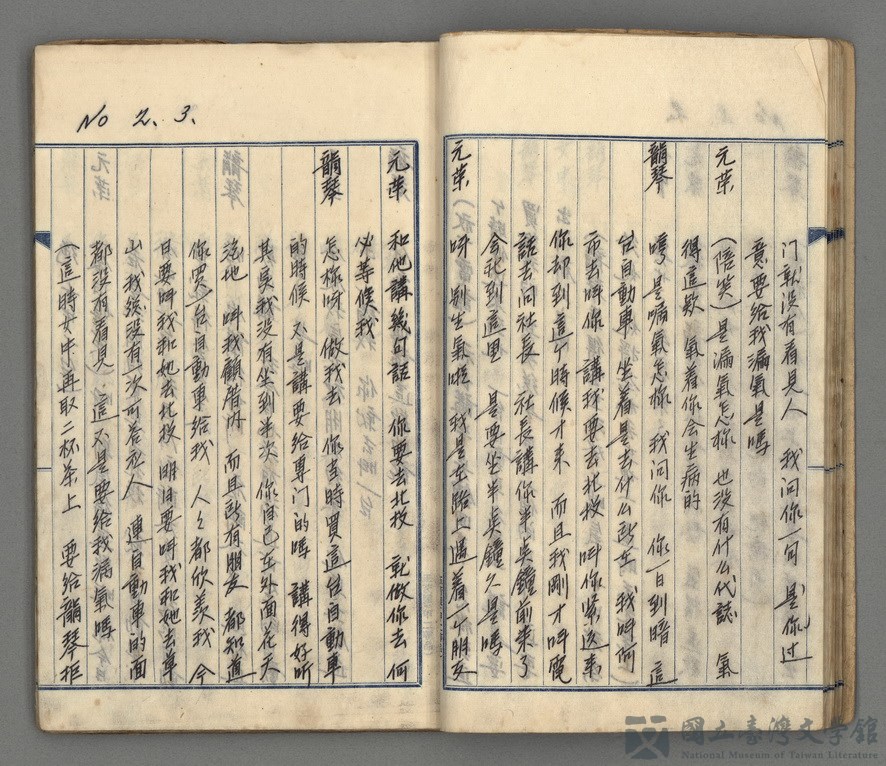 门就没有看見人 我问你一句 是你过
竟要给我漏氣是嗎
元荣 (陪笑)是漏氣怎樣 也没有什么代誌 氣
得這欵 氣着你会生病的
韻琴 哼是嘴氣怎樣 我问你 你一日到暗 這
台自動車 坐着是去什么所在 我呌阿
市去呌你 講我要去北投 呌你緊返来
你却到這个時候才来 而且我剛才呌電
話去问社長 社長講你半点鐘前来了
今祀到這里 是要坐半点鐘久是嗎
元荣 呀 别生氣啦 我是在路上遇着一个朋友
No 2.3.
元荣 和他講幾句話 你要去北投 就做你去 何
必等候我
韻琴 怎樣呀 做我去 你当時買這台自動車
的時候 不是講要给專门的嗎 講得好听
其实我没有坐到半次 你自己在外面花天
酒地 呌我顧厝内 而且所有朋友 都知道
你買一台自動車给我 人々都欣羡我 今
日要呌我和她去北投 明日要呌我和她去草
山 我総没有一次可答応人 連自動車的面
都没有看見 這不是要给我漏氣嗎
(這時女中再取二杯茶上 要给韻琴拒
國立臺灣文學館
National Museum of Taiwan Literature